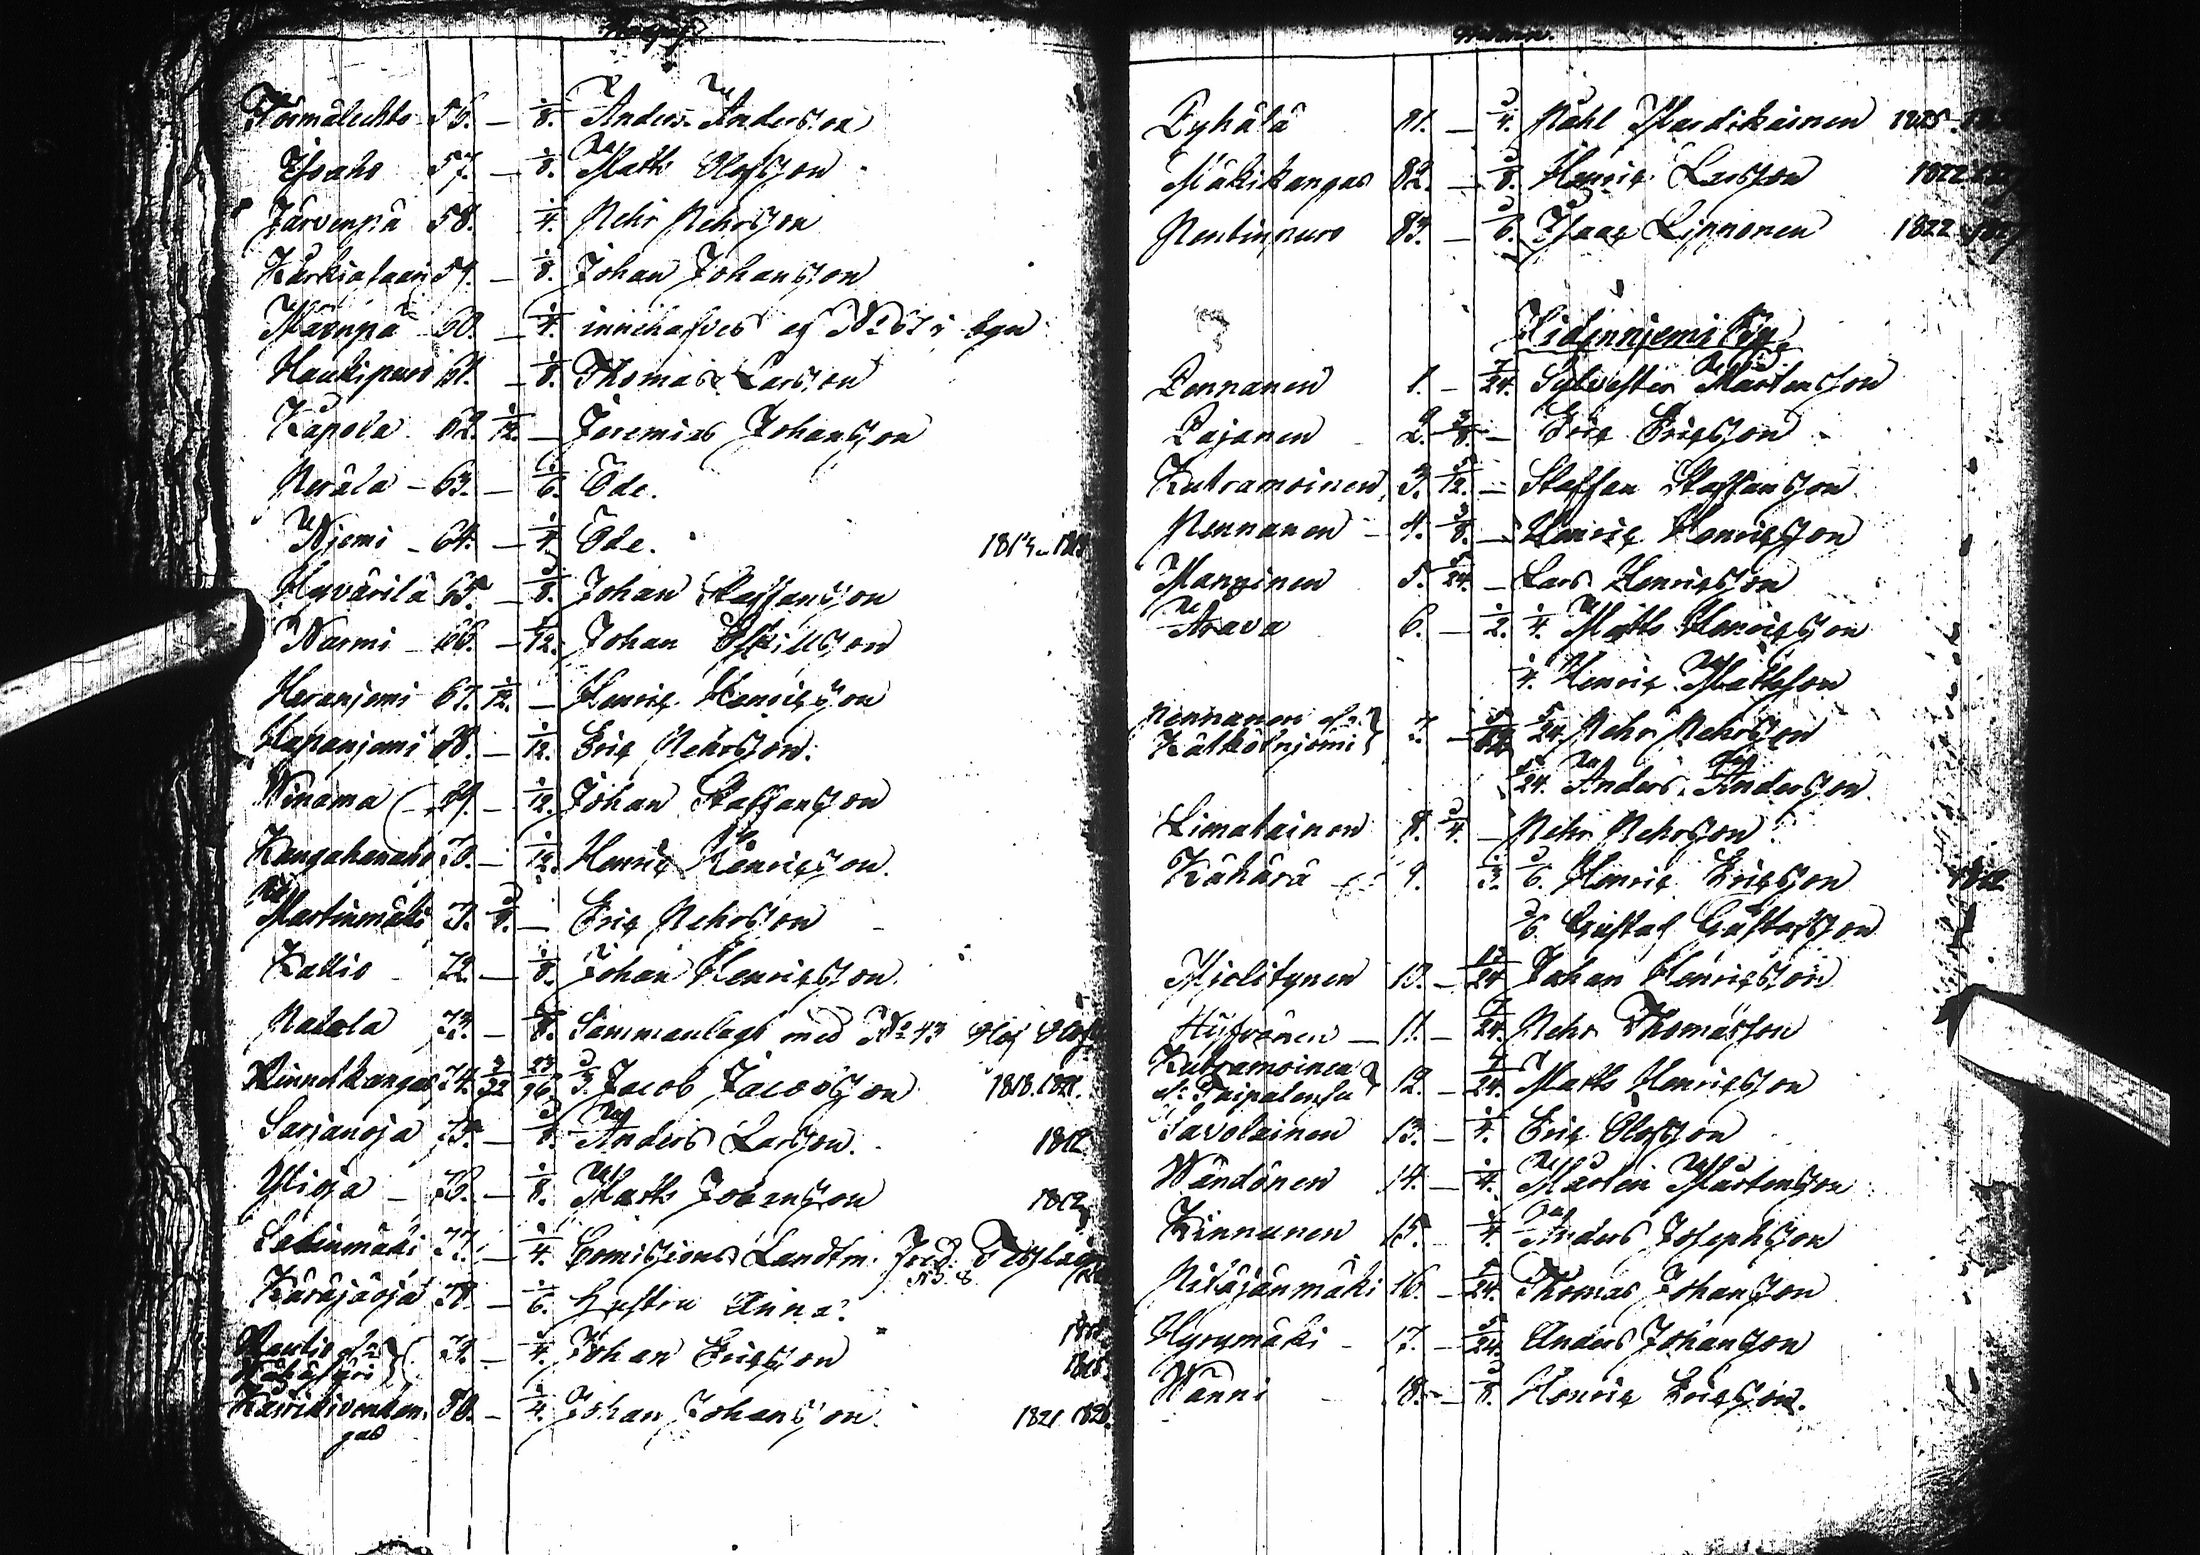 Törmälehto 56. — 1/8. Anders Andersson
Isoaho 57. — 1/8. Matts Olofsson
Järvenpä 58. 1/4. Pehr Pehrsson
59. — 1/8. Johan Johansson
60. — 1/4. innehafves af No 61 i byn
Haukipuro 61. — 1/8. Thomas Larsson
Kapola 62. 1/12. — Jeremias Johansson
Perälä 63. — 1/6. Öde.
Niemi 64. — 1/4. Öde.
Hyvärilä 65. — 1/8. Johan Staffansson
Nurmi 66. — 1/12. Johan Eskillsson
Heranjemi 67. 1/12. — Henric Henricsson
Hapanjemi 68. — 1/12. Eric Pehrsson.
Winama 69. — 1/12. Johan Staffansson
Kangahanaho 70. — 1/12. Henric Henricsson.
Martinmäki 71. 3/8. — Eric Pehrsson
Kallio 72. — 1/8. Johan Henricsson.
73. — Sammanlagt med No 43 Olof
74. Jacob Jacobsson 1818. 1821.
Sarjanoja 75. — 1/8. Anders Larsson. 1812
Ylioja — 76. — 1/8. Matts Johansson 1812
77. — 1/4. Comissions Landtm.
Käräjäoja 78. — 1/6. Hustru Anna.
79. — 1/4. Johan Ericsson
80. — 1/4. Johan Johansson. 1821
Pyhälä 81. — 1/4. Påhl Hardikainen 1825
Mäkikangas 82. — 1/8. Henric Larsson 1822
Pentinpuro 83. — 1/6. Isaac Lipponen 1822
Hidenniemi By.
Pennanen 1. — 7/24. Sylvester Mårtensson
Pajanen 2. 3/8. — Eric Ericsson
Kutramoinen 3. 5/12. — Staffan Staffansson
Pennanen 4. 3/8. — Henric Henricsson
Manninen 5. 5/24. — Lars Henricsson
Arava 6. — 1/2. 1/4. Matts Henricsson
1/4. Henric Mattsson
Pennanen el. Kälkäinjemi 7. — 5/24. Pehr Pehrsson
5/24. Anders Andersson
Limatainen 8. 1/4. — Pehr Pehrsson
Kähärä 9. 1/3. 1/6. Henric Ericsson
1/6. Gustaf Gustafsson
Mielitynen 10. — Johan Henricsson
11. — Pehr Thomasson
Kutramoinen el. 12. — Matts Henricsson
Savolainen 13. — 1/4. Eric Olofsson
Wändönen 14. — 1/4. Mårten Mårtensson
Kinnunen 15. 1/4. Anders Josephsson
16. — Thomas Johansson
Hyrymäki 17. — 5/24. Anders Johansson
Wänni 18. — Henric Ericsson.